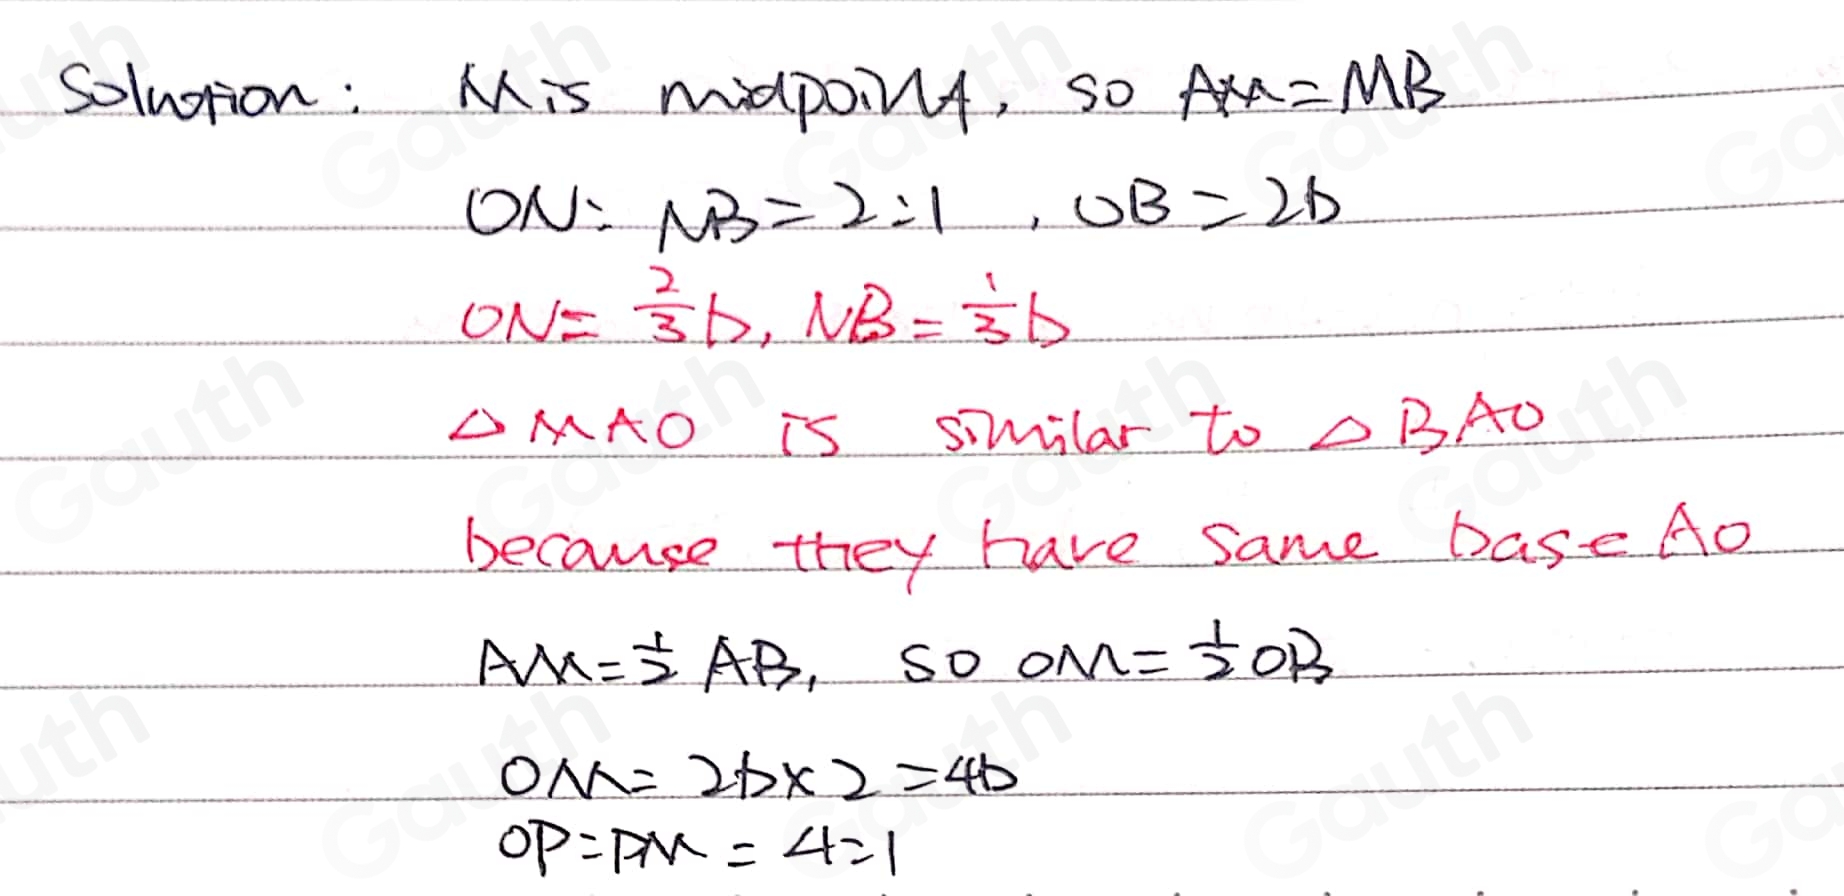 Solution: M is midpoint, so AM=MB
ON: NB=2:1, OB=2b
ON=2/3b, NB=1/3b
△MAO is similar to △BAO
because they have same base AO
AM=1/2AB, so OM=1/2OB
OM=2b×2=4b
OP:PM=4:1